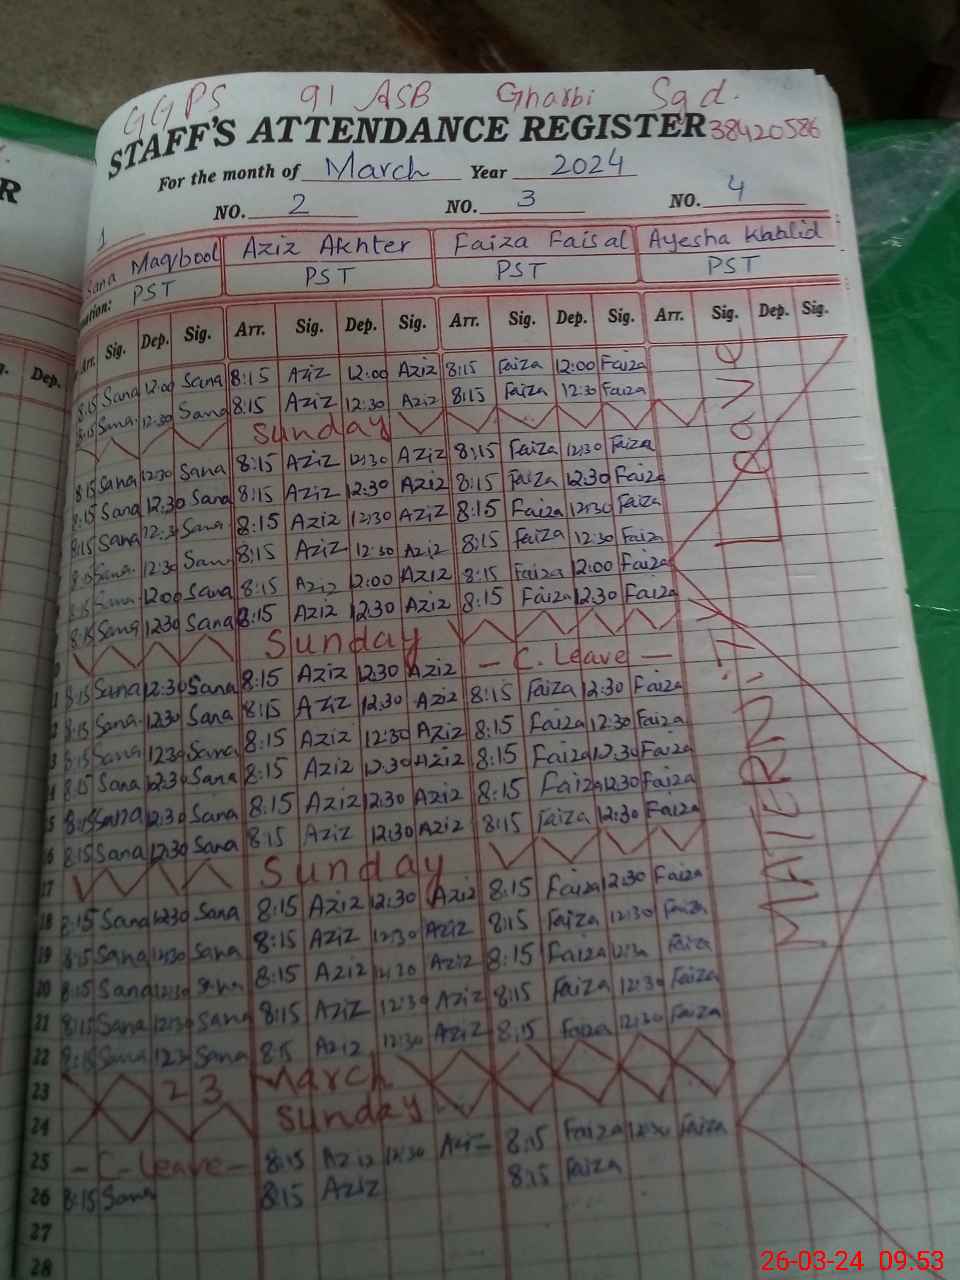 GGPS 91 ASB Gharbi Sgd.
STAFF'S ATTENDANCE REGISTER 38420586
For the month of March Year 2024
1 NO. 2 NO. 3 NO. 4
Sana Maqbool Aziz Akhter Faiza Faisal Ayesha Khalid
PST PST PST PST
Arr. Sig. Dep. Sig. Arr. Sig. Dep. Sig. Arr. Sig. Dep. Sig. Arr. Sig. Dep. Sig.
Dep.
8:15 Sana 12:00 Sana 8:15 Aziz 12:00 Aziz 8:15 Faiza 12:00 Faiza
8:15 Sana 12:30 Sana 8:15 Aziz 12:30 Aziz 8:15 Faiza 12:30 Faiza
Sunday
8:15 Sana 12:30 Sana 8:15 Aziz 12:30 Aziz 8:15 Faiza 12:30 Faiza
8:15 Sana 12:30 Sana 8:15 Aziz 12:30 Aziz 8:15 Faiza 12:30 Faiza
8:15 Sana 12:30 Sana 8:15 Aziz 12:30 Aziz 8:15 Faiza 12:30 Faiza
Sana 12:30 Sana 8:15 Aziz 12:30 Aziz 8:15 Faiza 12:30 Faiza
8:15 Sana 12:00 Sana 8:15 Aziz 12:00 Aziz 8:15 Faiza 12:00 Faiza
8:15 Sana 12:30 Sana 8:15 Aziz 12:30 Aziz 8:15 Faiza 12:30 Faiza
Sunday
8:15 Sana 12:30 Sana 8:15 Aziz 12:30 Aziz - C. Leave -
8:15 Sana 12:30 Sana 8:15 Aziz 12:30 Aziz 8:15 Faiza 12:30 Faiza
8:15 Sana 12:30 Sana 8:15 Aziz 12:30 Aziz 8:15 Faiza 12:30 Faiza
8:15 Sana 12:30 Sana 8:15 Aziz 12:30 Aziz 8:15 Faiza 12:30 Faiza
8:15 Sana 12:30 Sana 8:15 Aziz 12:30 Aziz 8:15 Faiza 12:30 Faiza
8:15 Sana 12:30 Sana 8:15 Aziz 12:30 Aziz 8:15 Faiza 12:30 Faiza
17 Sunday
18 8:15 Sana 12:30 Sana 8:15 Aziz 12:30 Aziz 8:15 Faiza 12:30 Faiza
19 8:15 Sana 12:30 Sana 8:15 Aziz 12:30 Aziz 8:15 Faiza 12:30 Faiza
20 8:15 Sana 12:30 Sana 8:15 Aziz 12:30 Aziz 8:15 Faiza 12:30 Faiza
21 8:15 Sana 12:30 Sana 8:15 Aziz 12:30 Aziz 8:15 Faiza 12:30 Faiza
22 8:15 Sana 12:30 Sana 8:15 Aziz 12:30 Aziz 8:15 Faiza 12:30 Faiza
23 23 March
24 Sunday
25 - C. Leave - 8:15 Aziz 12:30 Aziz 8:15 Faiza 12:30 Faiza
26 8:15 Sana 8:15 Aziz 8:15 Faiza
27
28
MATERNITY Leave
26-03-24 09.53